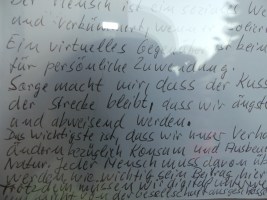 der Mensch ist ein soziales Wesen
und verkümmert, wenn
Ein virtuelles
für persönliche Zuwendung.
Sorge macht mir, dass der Kuss
der Strecke bleibt, dass wir ängst
und abweisend werden.
Das Wichtigste ist, dass wir unser Verha
ändern bezüglich Konsum und Ausbeu
Natur. Jeder Mensch muss davon üb
werden, wie wichtig sein Beitrag hier
Trotzdem müssen wir digital